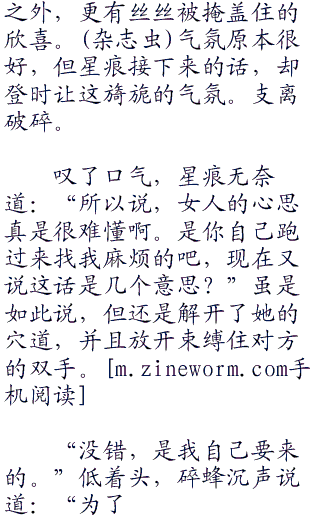 之外，更有丝丝被掩盖住的
欣喜。(杂志虫)气氛原本很
好，但星痕接下来的话，却
登时让这旖旎的气氛。支离
破碎。
叹了口气，星痕无奈
道：“所以说，女人的心思
真是很难懂啊。是你自己跑
过来找我麻烦的吧，现在又
说这话是几个意思？”虽是
如此说，但还是解开了她的
穴道，并且放开束缚住对方
的双手。[m.zineworm.com手
机阅读]
“没错，是我自己要来
的。”低着头，碎蜂沉声说
道：“为了